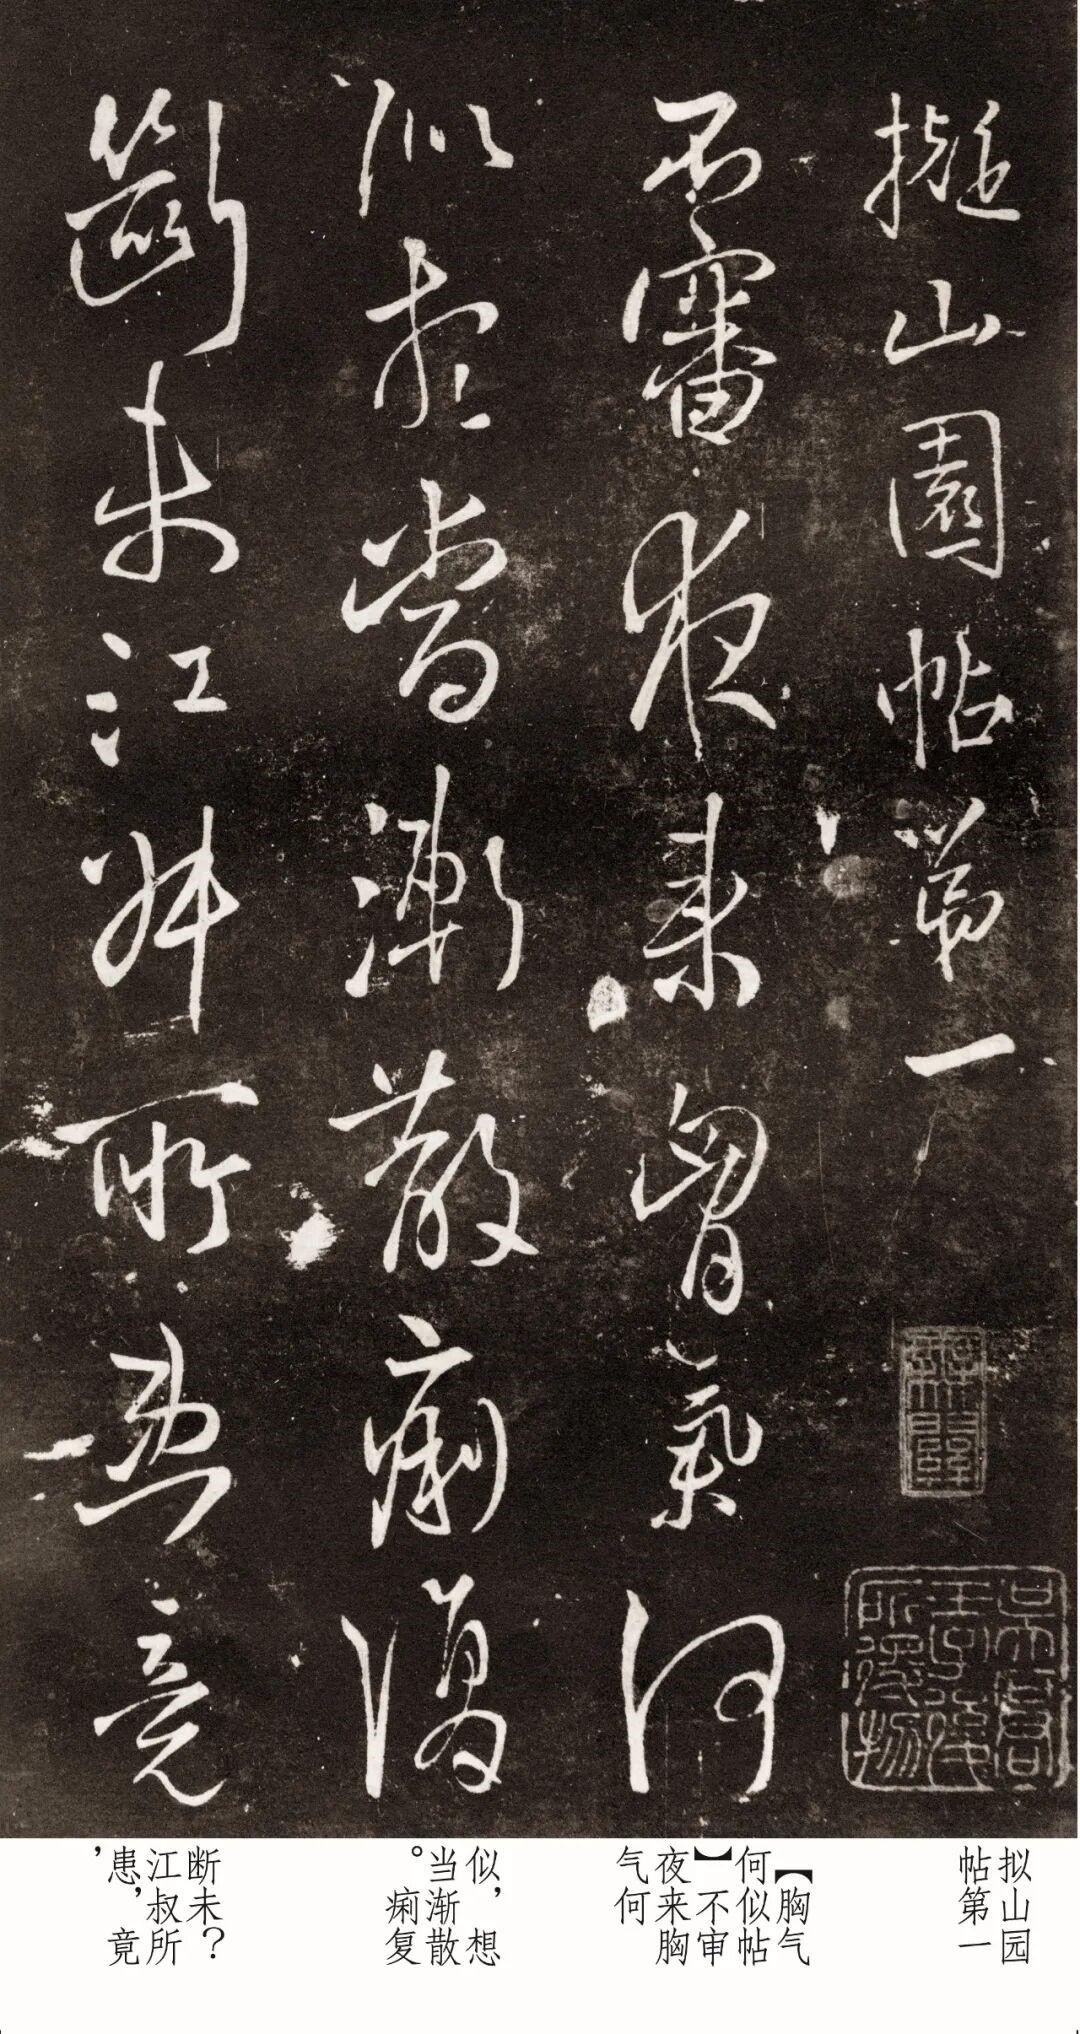 擬山園帖第一
不審夜來胷氣何
似想當漸散痢復
斷未江叔所患竟
拟山园
帖第一
【胸气
何似帖
】不审
夜来胸
气何
似，想
当渐散
。痢复
断未？
江叔所
患，竟
，